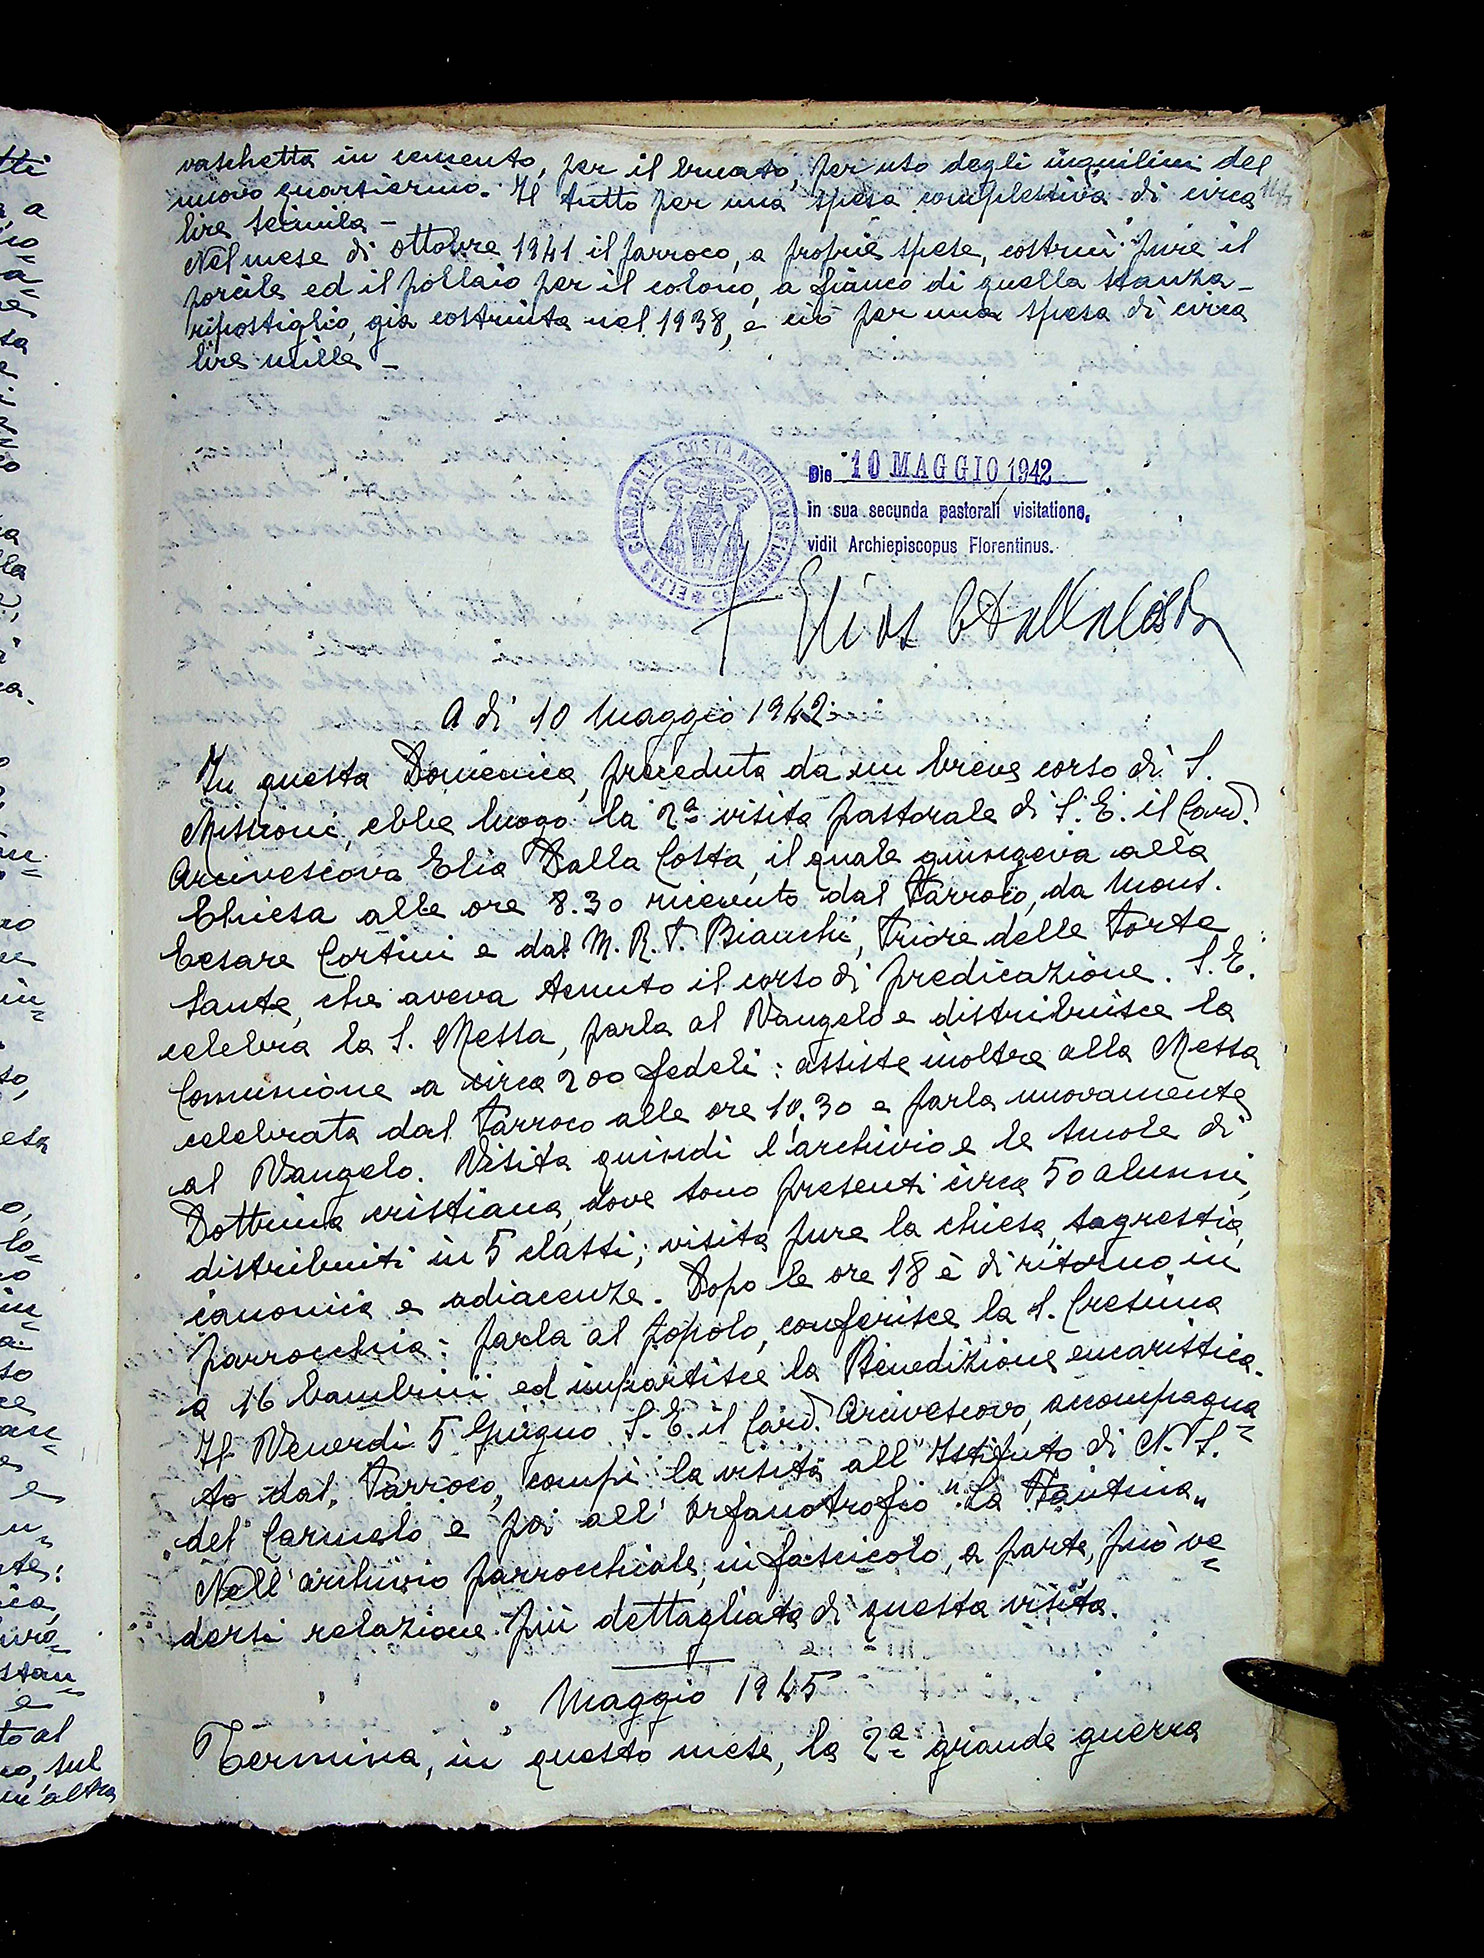 vaschetta in cemento, per il bucato, per uso degli inquilini del
nuovo quartierino. Il tutto per una spesa complessiva di circa
lire seimila –
Nel mese di ottobre 1941 il parroco, a proprie spese, costruì pure il
porcile ed il pollaio per il colono, a fianco di quella stanza-
ripostiglio, già costruita nel 1938, e ciò per una spesa di circa
lire mille –
ELIAS CARD. DALLA COSTA ARCHIEPVS FLORENTINVS
Die 10 MAGGIO 1942
in sua secunda pastorali visitatione,
vidit Archiepiscopus Florentinus.
+ Elias C. Dalla Costa
A dì 10 Maggio 1942:
In questa Domenica, preceduta da un breve corso di S.
Missioni, ebbe luogo la 2ª visita Pastorale di S. E. il Card.
Arcivescovo Elia Dalla Costa, il quale giungeva alla
Chiesa alle ore 8.30 ricevuto dal Parroco, da Mons.
Cesare Cortini e dal M. R. P. Bianchi, Priore delle Porte
Sante, che aveva tenuto il corso di predicazione. S. E.
celebra la S. Messa, parla al Vangelo e distribuisce la
Comunione a circa 200 fedeli: assiste inoltre alla Messa
celebrata dal Parroco alle ore 10.30 e parla nuovamente
al Vangelo. Visita quindi l'archivio e le scuole di
Dottrina cristiana, dove sono presenti circa 50 alunni,
distribuiti in 5 classi; visita pure la chiesa, sagrestia,
canonica e adiacenze. Dopo le ore 18 è di ritorno in
parrocchia: parla al popolo, conferisce la S. Cresima
a 16 bambini ed impartisce la Benedizione eucaristica.
Il Venerdì 5 Giugno S. E. il Card. Arcivescovo, accompagna=
to dal Parroco, compì la visita all'Istituto di N. S.
del Carmelo e poi all'Orfanotrofio "La Fantina„
Nell'archivio parrocchiale, in fascicolo, a parte, può ve=
dersi relazione più dettagliata di questa visita.
Maggio 1945
Termina, in questo mese, la 2ª grande guerra